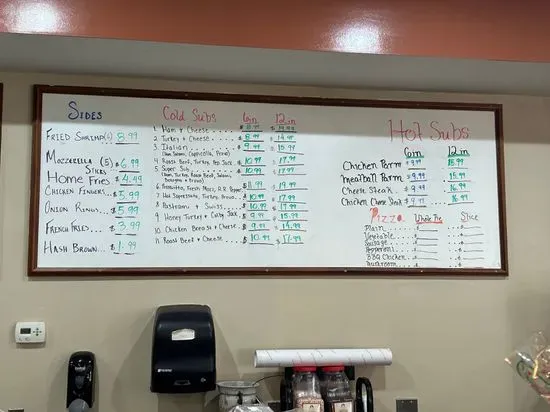 Sides
Fried Shrimp(6) 8.99
Mozzarella (5) $6.99
Sticks
Home Fries $4.49
Chicken Fingers... $5.99
Onion Rings... $5.99
French Fries... $3.99
Hash Brown... $1.99
Cold Subs 6in 12in
1. Ham & Cheese
2. Turkey & Cheese 14.99
3. Italian 9.99 15.99
(Ham, Salami, Cappicolla, Prov)
4. Roast Beef, Turkey, Pep Jack 10.99 17.99
5. Super Sub 10.99 17.99
(Ham, Turkey, Roast Beef, Salami,
6. Prosciutto, Fresh Mozz, R.R. Pepper $11.99 19.99
7. Hot Sopressata, Turkey, Provo $10.99 17.99
8. Pastrami & Swiss $10.99 17.99
9. Honey Turkey & Colby Jack $9.99 15.99
10. Chicken Breast & Cheese $9.99 14.99
11. Roast Beef & Cheese 10.99 17.99
Hot Subs
6in 12in
Chicken Parm $9.99 15.99
Meatball Parm $9.99 15.99
Cheese Steak $9.99 16.99
Chicken Cheese Steak $9.99 16.99
Pizza Whole Pie Slice
Plain
Vegetable
Sausage
Pepperoni
BBQ Chicken
Mushroom